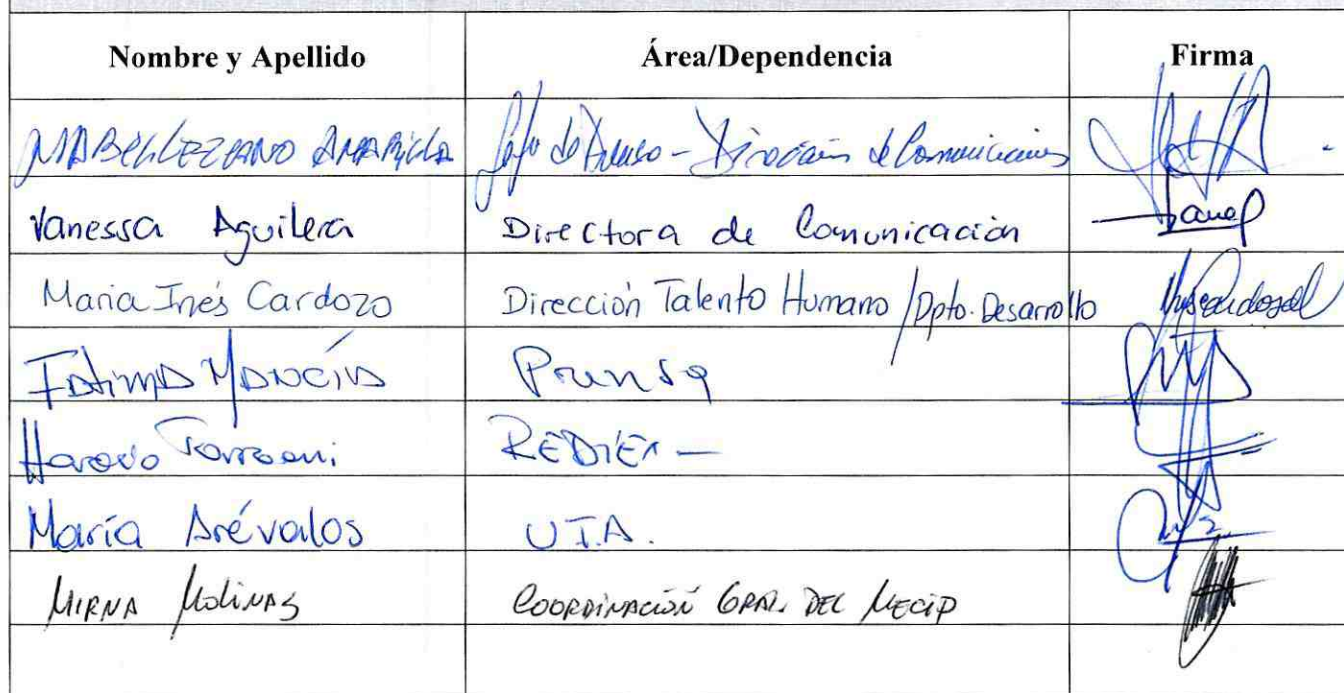 Nombre y Apellido Área/Dependencia Firma
MABEL LEZCANO AMARILLA Jefe de Prensa - Dirección de Comunicaciones
Vanessa Aguilera Directora de Comunicación
Maria Inés Cardozo Dirección Talento Humano / Dpto. Desarrollo
FATIMA MANCIA Prensa
REDIEX -
María Arévalos U.T.A.
MIRNA MOLINAS COORDINACIÓN GRAL. DEL MECIP